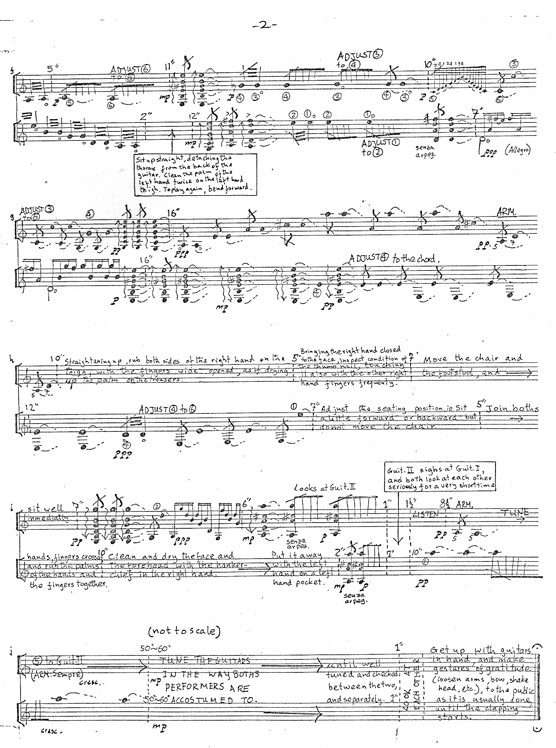 -2-
5"
ADJUST⑥
to ⑤
11"
ADJUST⑤
to ④
10"
mp
2"
12"
mp
ADJUST①
to ②
senza
arpeg.
7"
ppp (Allegro)
Sit up straight, detaching the
thorax from the back of the
guitar. Clean the palm of the
left hand twice on the left hand
thigh. To play again, bend forward.
ADJUST③
16"
ARM.
pp
16"
ADJUST④ to the chord.
mp
pp
10" Straightening up, rub both sides of the right hand on the
thigh, with the fingers wide opened, as if drying
up the palm on the trousers.
5" Bringing the right hand closed
to the face, inspect condition of
the thumb nail, touching
it also with the other right
hand fingers frequently.
Move the chair and
the footstool, and
12"
ADJUST④ to ⑥
7" Adjust the seating position i.e. Sit
a little forward or backward but
do not move the chair.
5" Join boths
ppp
Guit. II sighs at Guit. I,
and both look at each other
seriously for a very short time
sit well
immediatly
7"
ppp
6"
Looks at Guit. II
senza
arpeg.
1"
1½"
LISTEN
8½" ARM.
TUNE
pp
hands, fingers crossed
and run the palms
of the hands and
the fingers together.
10" Clean and dry the face and
the forehead with the hanker-
chief in the right hand
Put it away
with the left
hand on a left
hand pocket.
2"
mp
senza
arpeg.
10"
pp
(not to scale)
⑤ to Guit. II
(ARM. Sempre)
cresc.
50~60"
mp
TUNE THE GUITARS
IN THE WAY BOTHS
PERFORMERS ARE
ACCOSTUMED TO.
until well
tuned and checked
between the two,
and separately.
1"
LOOK AT
EACH OTHER
Get up with guitars
in hand and make
gestures of gratitude
(loosen arms, bow, shake
head, etc.), to the public
as it is usually done
until the clapping
starts.
50~60"
mp
cresc.